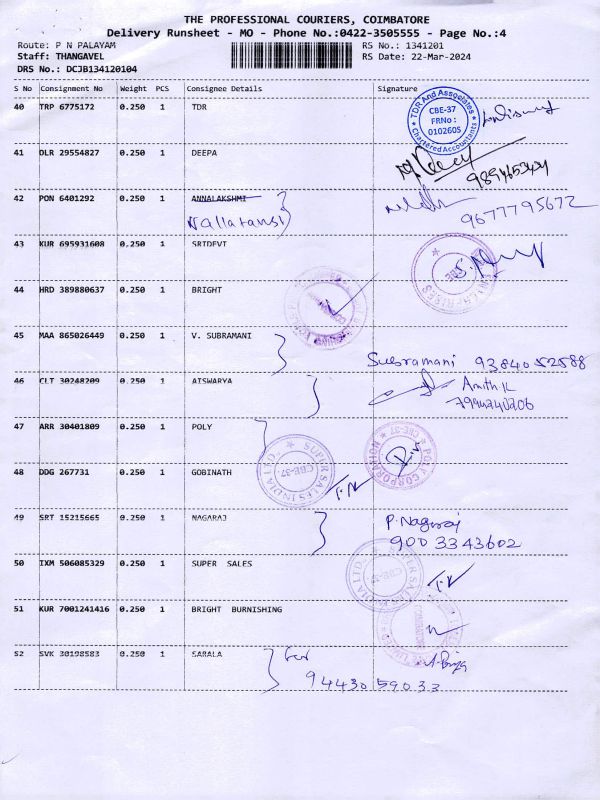 THE PROFESSIONAL COURIERS, COIMBATORE
Delivery Runsheet - MO - Phone No.:0422-3505555 - Page No.:4
Route: P N PALAYAM RS No.: 1341201
Staff: THANGAVEL RS Date: 22-Mar-2024
DRS No.: DCJB134120104
S No Consignment No Weight PCS Consignee Details Signature
40 TRP 6775172 0.250 1 TDR
TDR And Associates
CBE-37
FRNo :
010260S
Chartered Accountants
41 DLR 29554827 0.250 1 DEEPA
42 PON 6401292 0.250 1 ANNALAKSHMI
9677795672
43 KUR 695931608 0.250 1 SRIDEVI
44 HRD 389880637 0.250 1 BRIGHT
45 MAA 865026449 0.250 1 V. SUBRAMANI
Subramani 9384052588
46 CLT 30248209 0.250 1 AISWARYA
Amith K
47 ARR 30401809 0.250 1 POLY
POLY CORPORATION
CBE-37
48 DDG 267731 0.250 1 GOBINATH
SUPER SALES INDIA LTD.
CBE-37
T.N
49 SRT 15215665 0.250 1 NAGARAJ
P. Nagaraj
9003343602
50 IXM 506085329 0.250 1 SUPER SALES
SUPER SALES INDIA LTD.
CBE-37
51 KUR 7001241416 0.250 1 BRIGHT BURNISHING
52 SVK 30198583 0.250 1 SARALA
9443059033